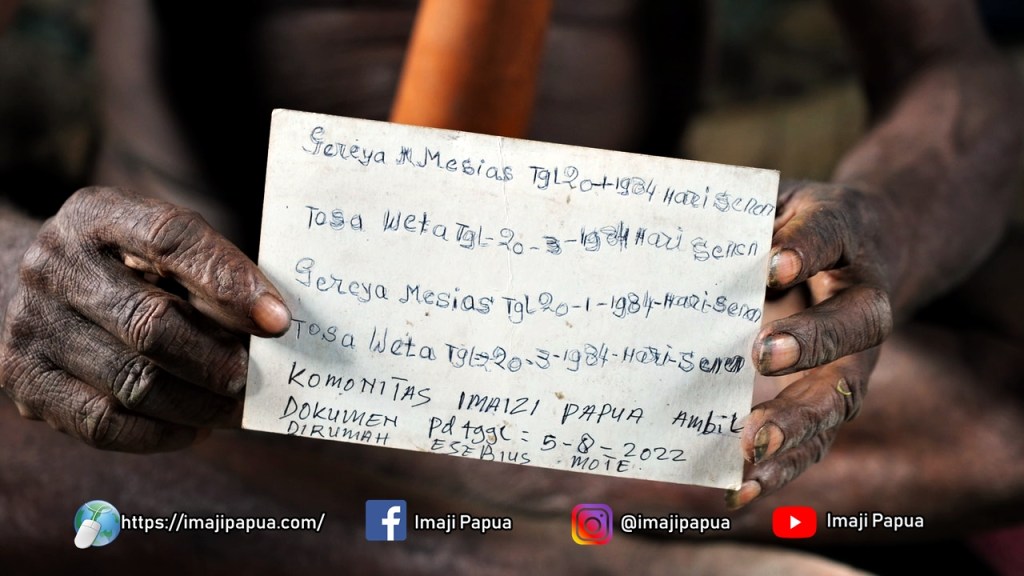 Gereya Mesias Tgl 20-1-1984 Hari Senen
Tosa Weta Tgl-20-3-1984 Hari Senen
Gereya Mesias Tgl 20-1-1984-Hari-Senen
Tosa Weta Tgl-20-3-1984-Hari-Senen
KOMONITAS IMAIZI PAPUA AmbiL
DOKUMEN pd tggl = 5-8-2022
DIRUMAH ESEBIUS MOTE.
https://imajipapua.com/ Imaji Papua @imajipapua Imaji Papua